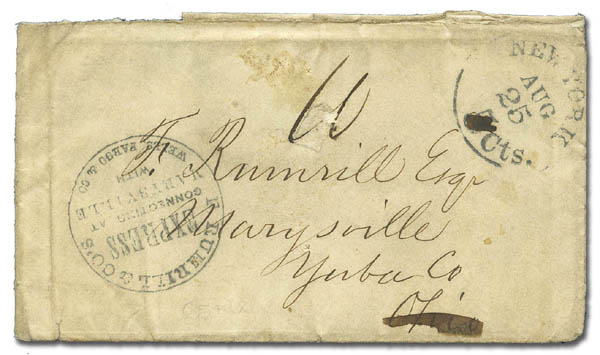 NEW YORK
AUG
25
Cts.
F. Rumrill Esqr
Marysville
Yuba Co
F. RUMRILL & CO'S
EXPRESS
CONNECTING AT
MARYSVILLE
WITH
WELLS FARGO & CO